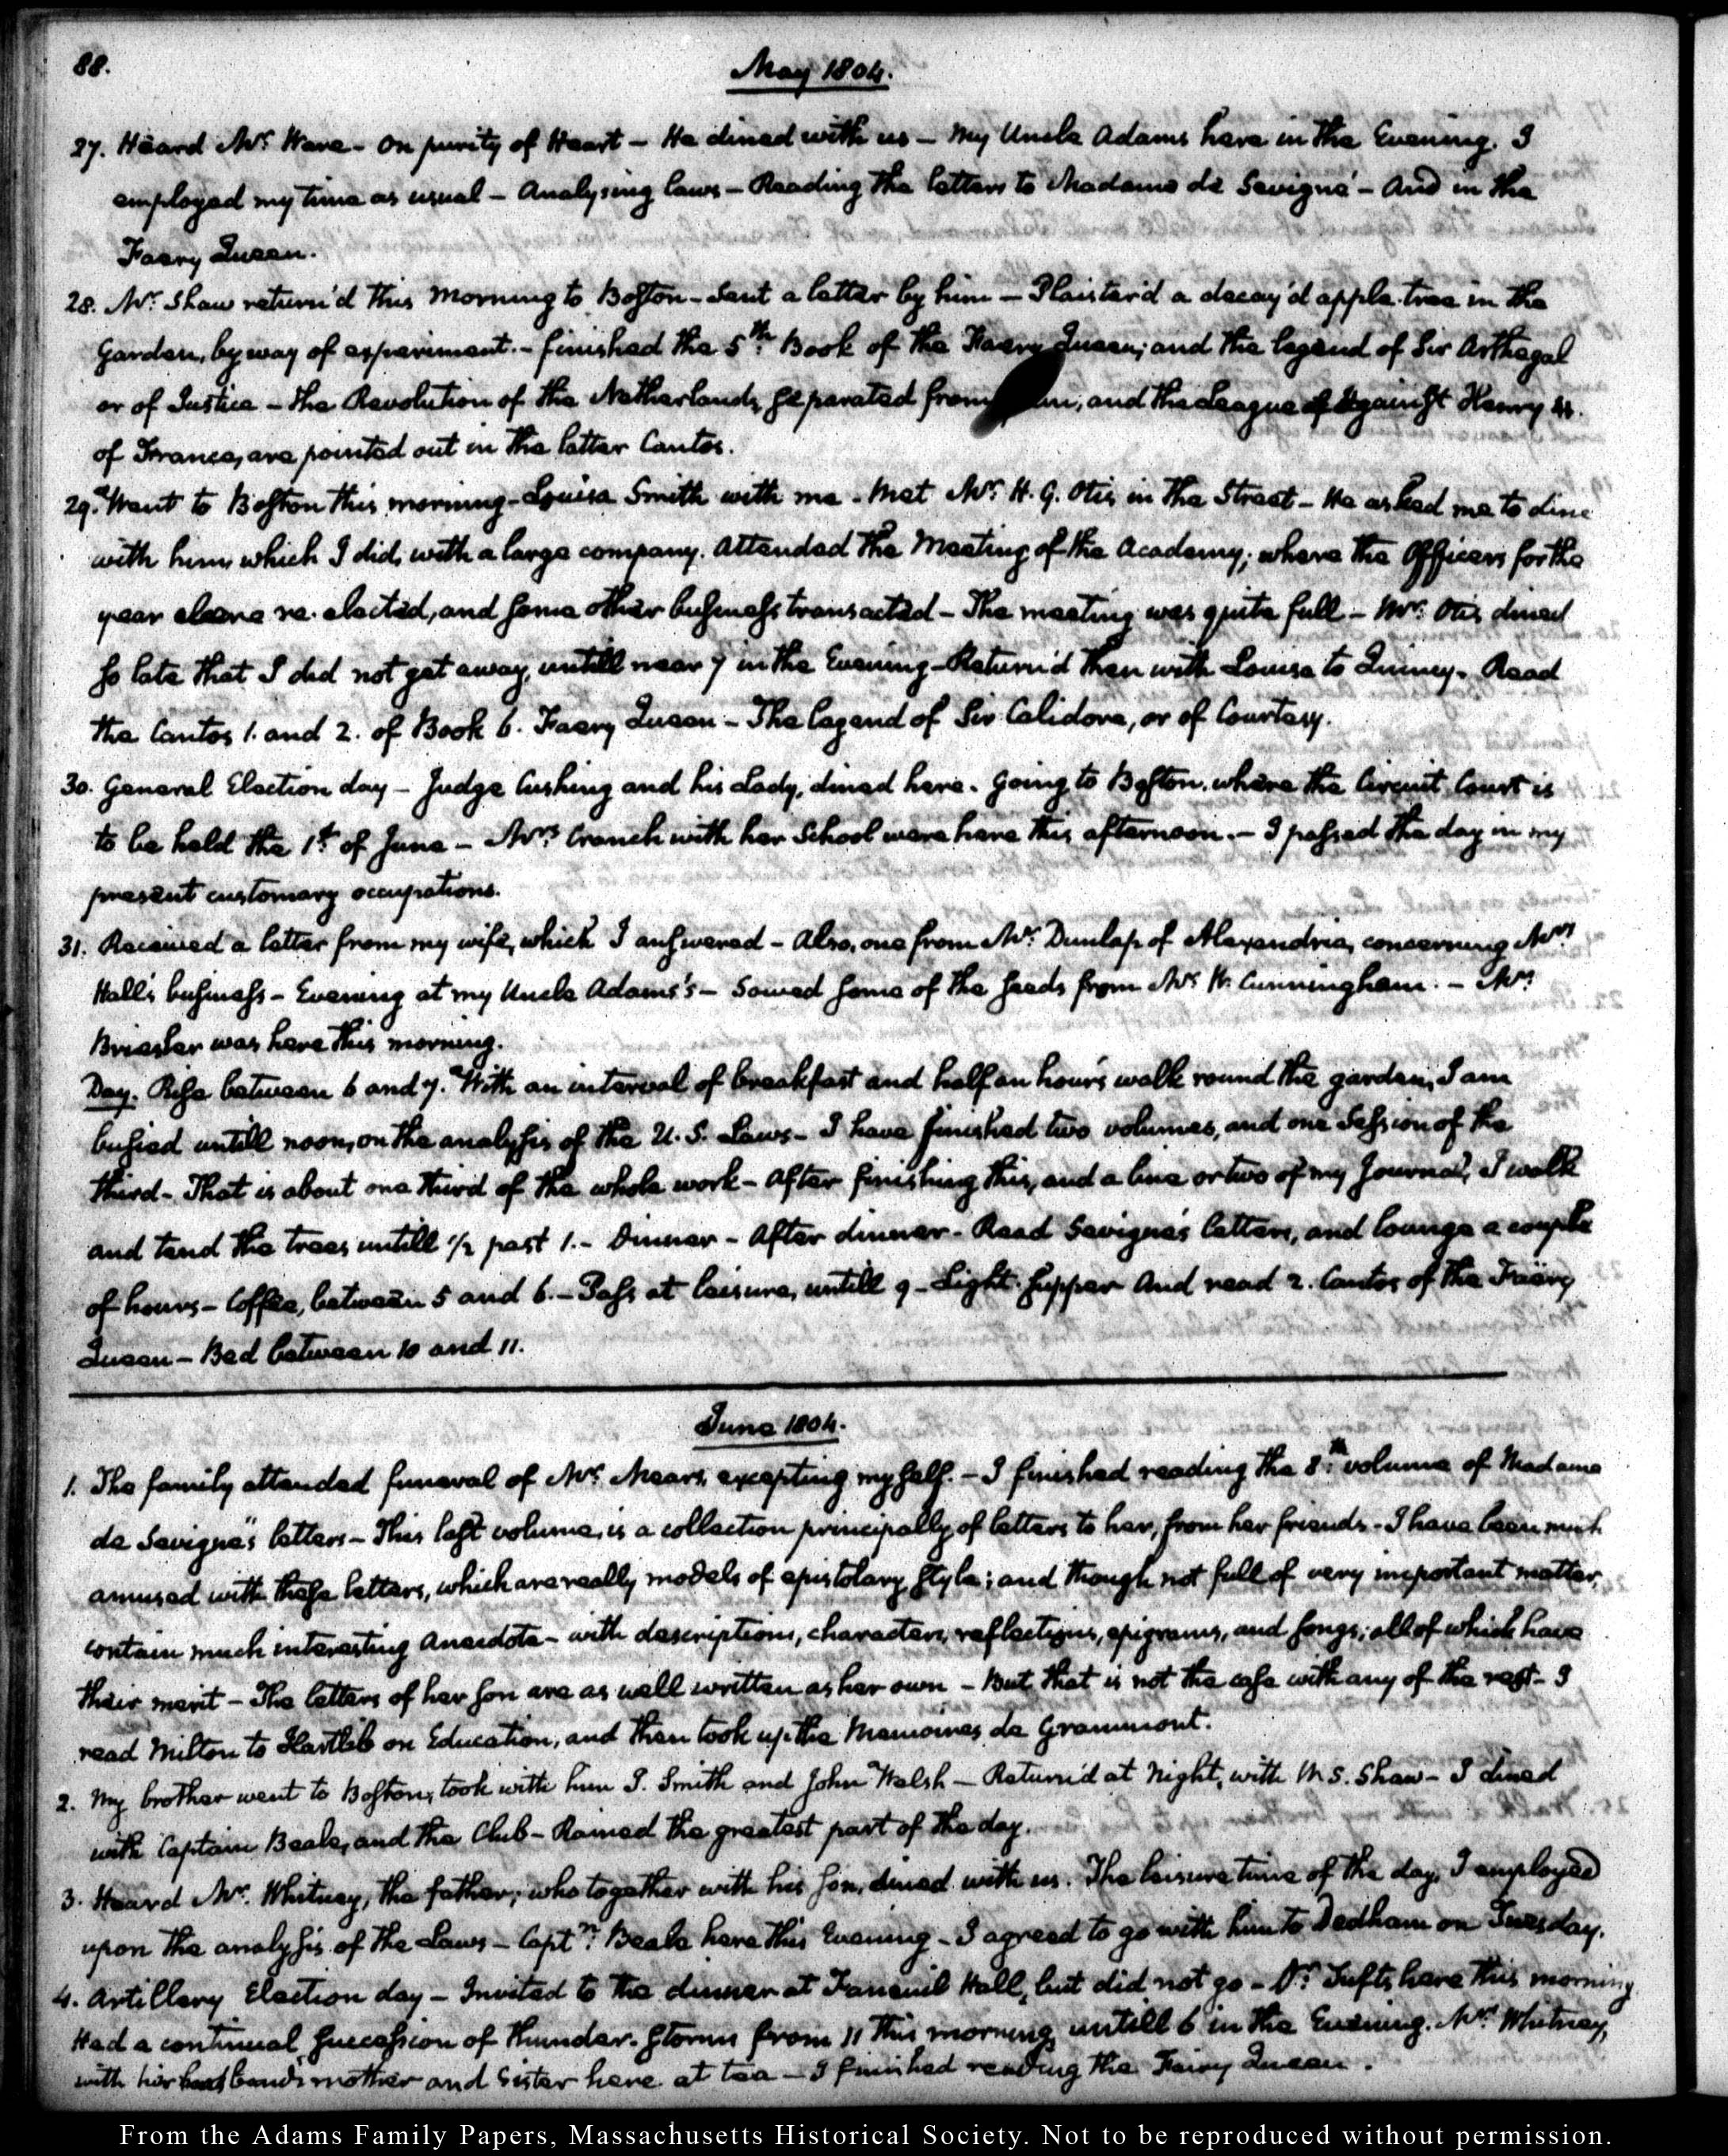 88.
May 1804.
27. Heard Mr. Ware - On purity of Heart - He dined with us - My Uncle Adams here in the Evening. I
employed my time as usual - Analysing laws - Reading the letters to Madame de Sevigné - And in the
Faery Queen.
28. Mr. Shaw return'd this Morning to Boston - Sent a letter by him - Plaister'd a decay'd apple-tree in the
Garden, by way of experiment. - finished the 5th. Book of the Faery Queen; and the legend of Sir Arthegal
or of Justice - The Revolution of the Netherlands, separated from and the League of against Henry 4.
of France, are pointed out in the latter Cantos.
29. Went to Boston this morning - Louisa Smith with me - Met Mr. H. G. Otis in the Street - He asked me to dine
with him, which I did, with a large company. Attended the Meeting of the Academy; where the Officers for the
year were re-elected, and some other business transacted - The meeting was quite full - Mr. Otis dined
so late that I did not get away, untill near 7 in the Evening - Return'd then with Louisa to Quincy. Read
the Cantos 1. and 2. of Book 6. Faery Queen - The legend of Sir Calidore, or of Courtesy.
30. General Election day - Judge Cushing and his Lady, dined here. Going to Boston, where the Circuit Court is
to be held the 1st. of June - Mrs. Cranch with her School were here this afternoon. - I passed the day in my
present customary occupations.
31. Received a letter from my wife, which I answered - Also, one from Mr. Dunlap of Alexandria, concerning Mrs.
Hall's business - Evening at my Uncle Adams's - Sowed some of the seeds from Mr. W. Cunningham. - Mrs.
Briesler was here this morning.
Day. Rise between 6 and 7. With an interval of breakfast and half an hour's walk round the garden, I am
busied untill noon, on the analysis of the U.S. Laws - I have finished two volumes, and one Session of the
third - That is about one third of the whole work - After finishing this, and a line or two of my Journal, I walk
and tend the trees untill 1/2 past 1. - Dinner - After dinner - Read Sevigné's letters, and lounge a couple
of hours - Coffee, between 5 and 6. - Pass at leisure, untill 9 - Light supper And read 2. Cantos of the Faery
Queen - Bed between 10 and 11.
June 1804.
1. The family attended funeral of Mr. Mears, excepting myself. - I finished reading the 8th. volume of Madame
de Sevigné's letters - This last volume, is a collection principally of letters to her, from her friends - I have been much
amused with these letters, which are really models of epistolary style; and though not full of very important matter,
contain much interesting Anecdote - with descriptions, characters, reflections, epigrams, and songs; all of which have
their merit - The letters of her son are as well written as her own - But that is not the case with any of the rest - I
read Milton to Hartlib on Education, and then took up the Memoires de Grammont.
2. My brother went to Boston, took with him J. Smith and John Welsh - Return'd at Night, with W. S. Shaw - I dined
with Captain Beale, and the Club - Rained the greatest part of the day.
3. Heard Mr. Whitney, the father; who together with his son, dined with us. The leisure time of the day, I employed
upon the analysis of the Laws - Captn. Beale here this Evening - I agreed to go with him to Dedham on Tuesday.
4. Artillery Election day - Invited to the dinner at Faneuil Hall, but did not go - Dr. Tufts here this morning
Had a continual succession of thunder-storms from 11 this morning untill 6 in the Evening. Mrs. Whitney,
with her husband's mother and Sister here at tea - I finished reading the Fairy Queen.
From the Adams Family Papers, Massachusetts Historical Society. Not to be reproduced without permission.